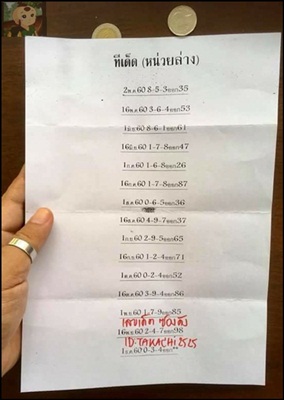 ทีเด็ด (หน่วยล่าง)
2พ.ค 60 8-5-3ออก35
16พ.ค 60 3-6-4ออก53
1มิ.ย 60 8-6-1ออก61
16มิ.ย 60 1-7-8ออก47
1ก.ค 60 1-6-8ออก26
16ก.ค 60 1-7-8ออก87
1ส.ค 60 0-6-5ออก36
16ส.ค 60 4-9-7ออก37
1ก.ย 60 2-9-5ออก65
16ก.ย 60 1-2-4ออก71
1ต.ค 60 0-2-4ออก52
16ต.ค 60 3-9-4ออก86
1พ.ย 60 1-7-9ออก85
เลขเด็ด ซองดัง
16พ.ย 60 2-4-7ออก98
ID:TAKACHI2525
1ธ.ค 60 0-3-4ออก**